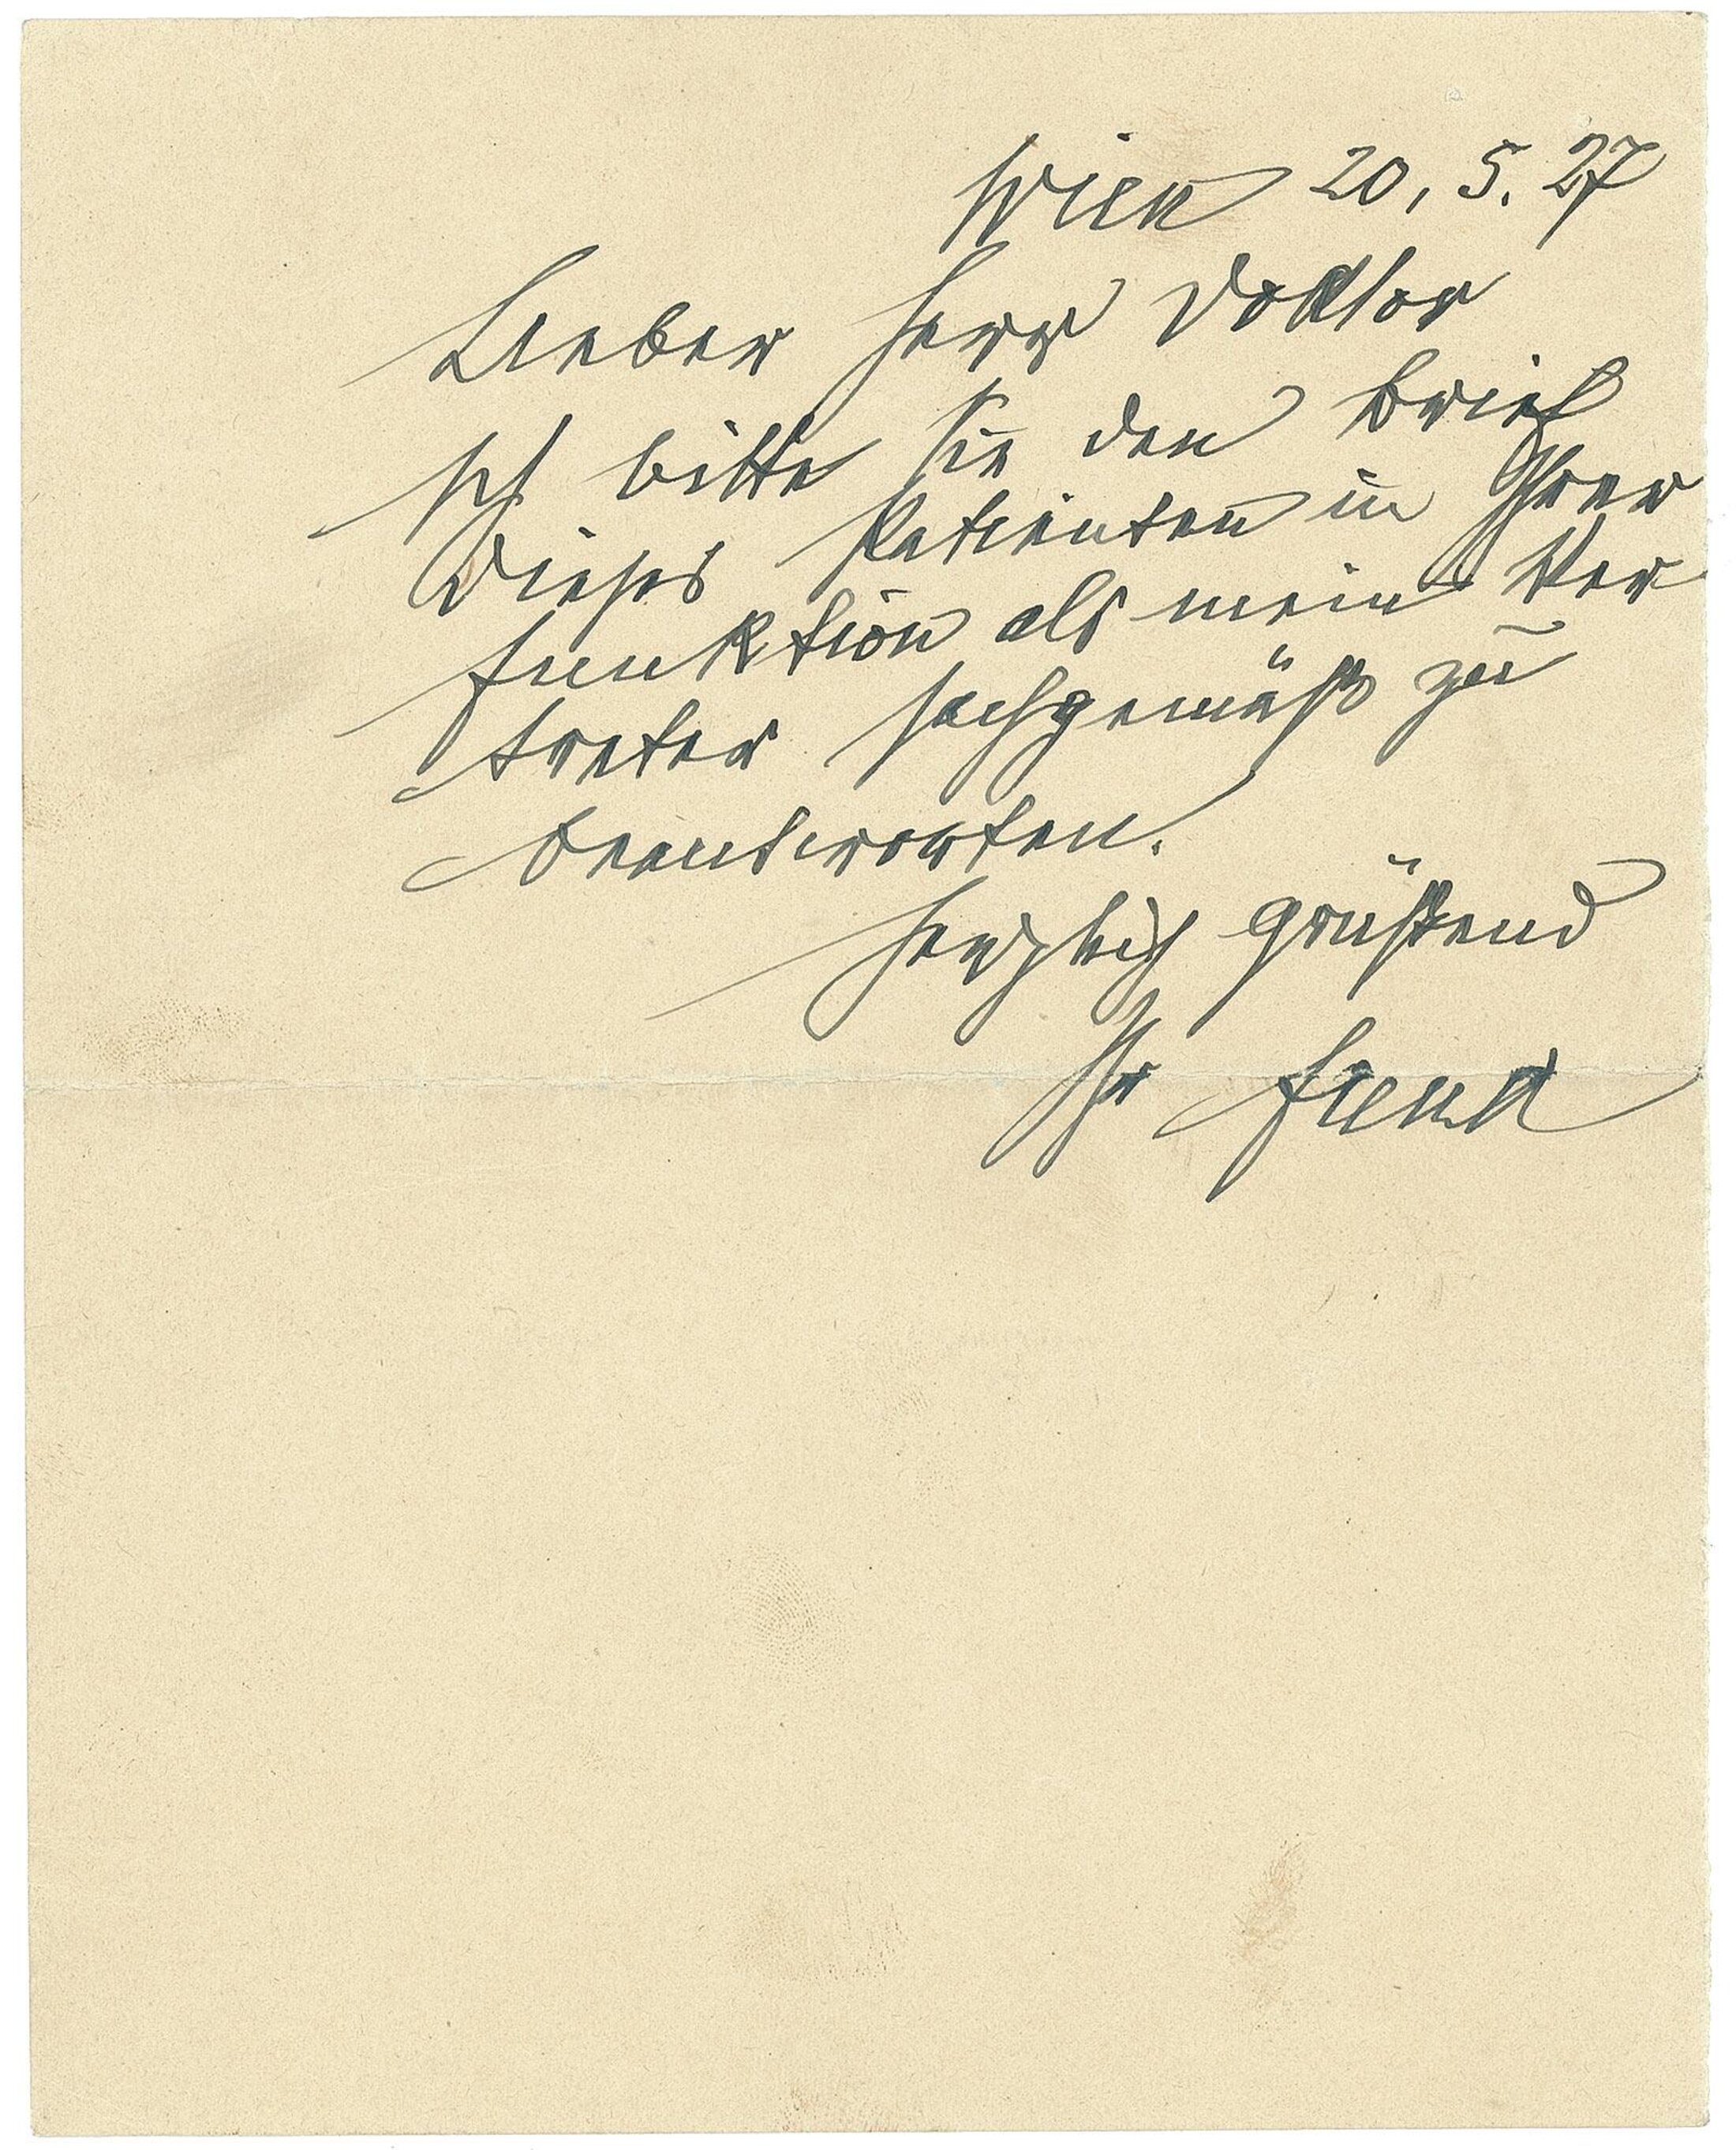 Wien 20, 5. 27
Lieber Herr Doktor
Ich bitte Sie den Brief
dieses Patienten in Ihrer
Funktion als mein Ver
treter sachgemäß zu
beantworten.
Herzlich grüßend
Ihr Funk